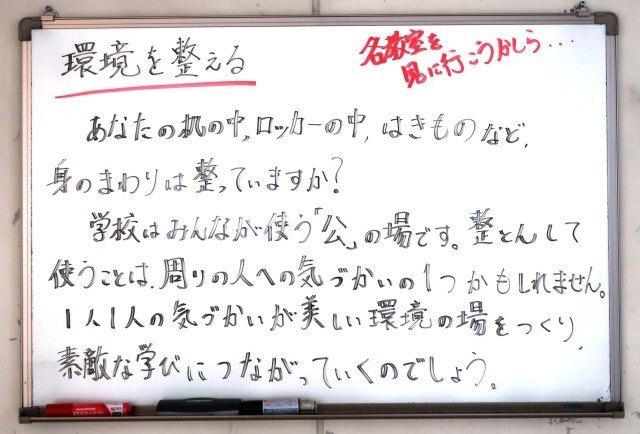 環境を整える
各教室を
見に行こうかしら...
あなたの机の中,ロッカーの中,はきものなど,
身のまわりは整っていますか?
学校はみんなが使う「公」の場です。整とんして
使うことは,周りの人への気づかいの1つかもしれません。
1人1人の気づかいが美しい環境の場をつくり,
素敵な学びにつながっていくのでしょう。